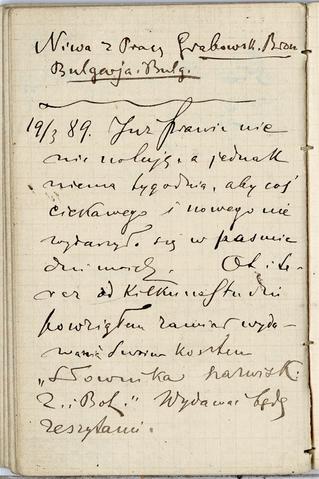 Niwa z Pracy Grabowsk. Bron.
Bulgarja i Bulg.
19/3 89. Już prawie nie
nic notuję, a jednak
niema tygodnia, aby coś
ciekawego i nowego nie
wydarzył. się w paśmie
dni moich. Ot i te-
raz od kilkunastu dni
powziąłem zamiar wyda-
wania swoim kosztem
„Słownika nazwisk
Z. i Bot." Wydawać będę
zeszytami.